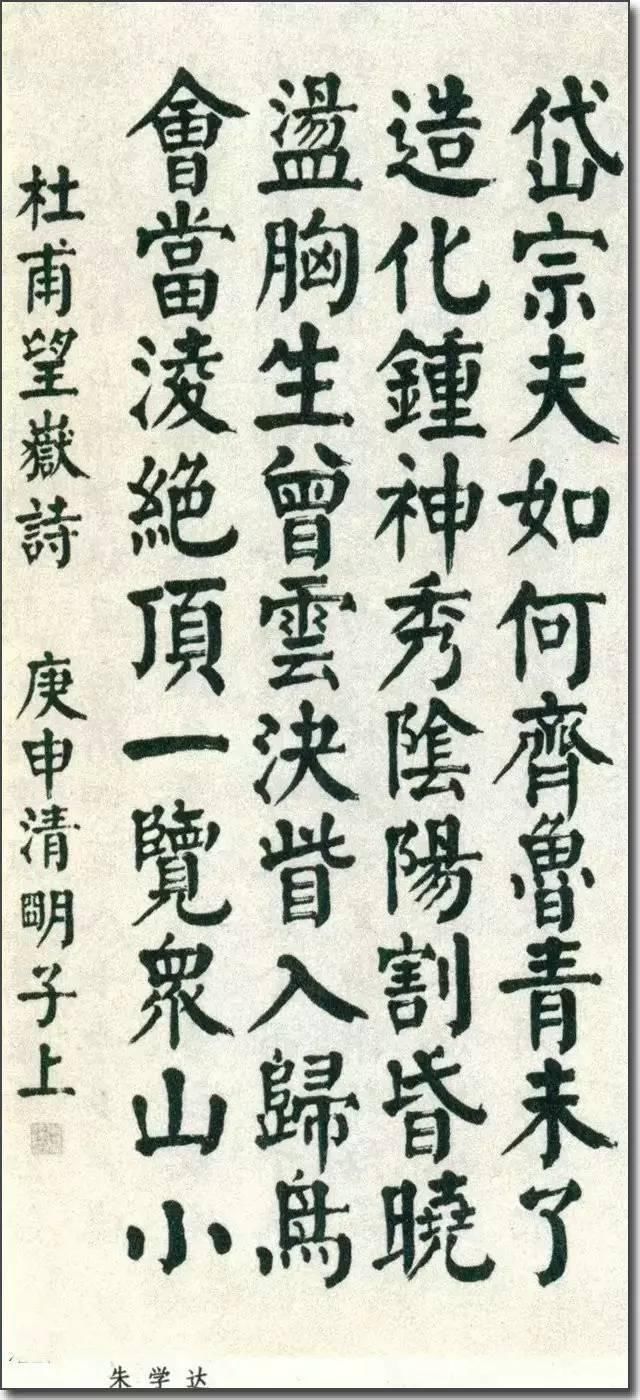 岱宗夫如何齊魯青未了
造化鍾神秀陰陽割昏曉
盪胸生曾雲決眥入歸鳥
會當淩絕頂一覽眾山小
杜甫望嶽詩 庚申清明子上
朱学达